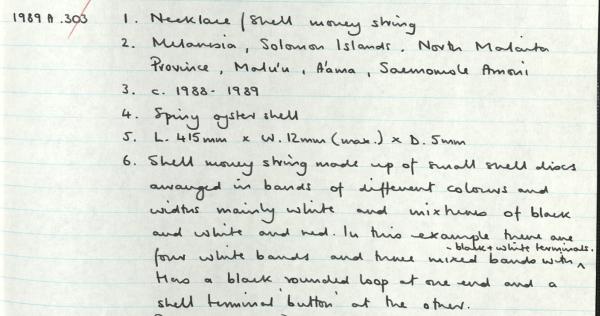 1989 A .303 1. Necklace / Shell money string
2. Melanesia, Solomon Islands, North Malaita
Province, Malu'u, A'ama, Saemomole Amoni
3. c. 1988 - 1989
4. Spiny oyster shell
5. L. 415mm x W. 12mm (max.) x D. 5mm
6. Shell money string made up of small shell discs
arranged in bands of different colours and
widths mainly white and mixtures of black
and white and red. In this example there are
- black + white terminals.
four white bands and three mixed bands with ^
Has a black rounded loop at one end and a
shell terminal 'button' at the other.